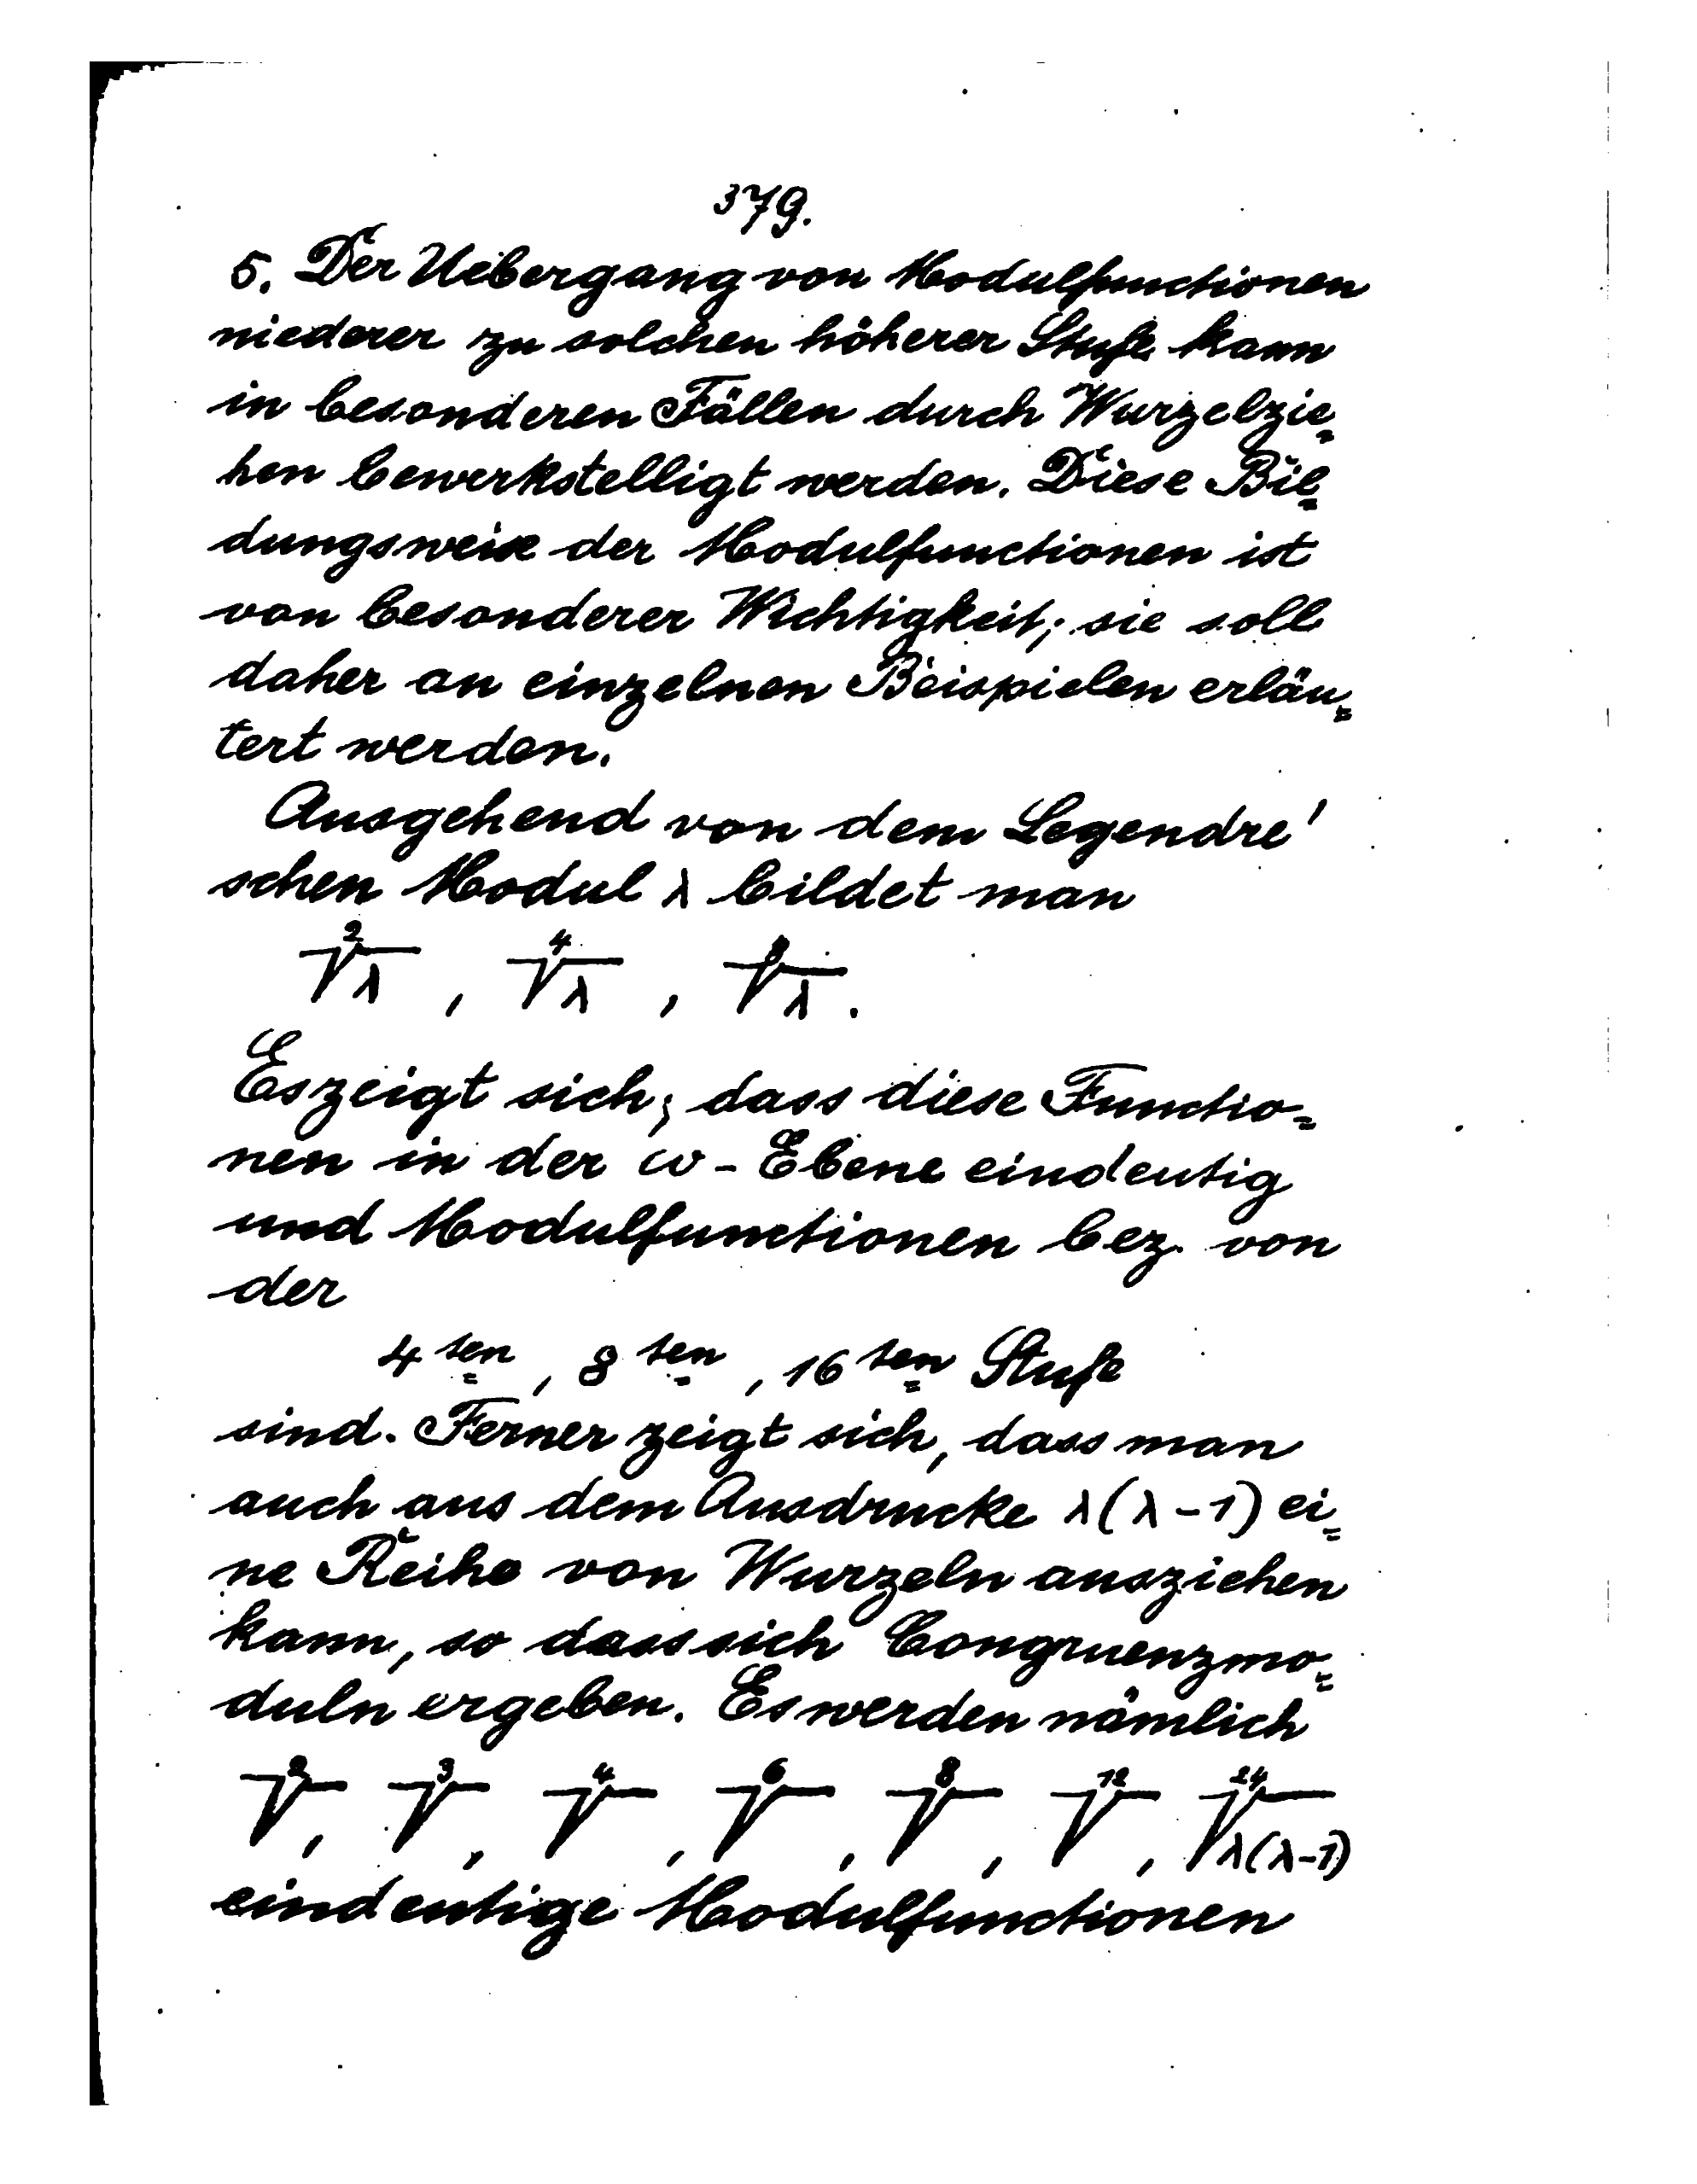 379.
5. Der Uebergang von Modulfunctionen
niederer zu solchen höherer Stufe kann
in besonderen Fällen durch Wurzelzie=
hen bewerkstelligt werden. Diese Bil=
dungsweise der Modulfunctionen ist
von besonderer Wichtigkeit; sie soll
daher an einzelnen Beispielen erläu=
tert werden.
Ausgehend von dem Legendre'
schen Modul λ bildet man
²√λ , ⁴√λ , ⁸√λ .
Es zeigt sich, dass diese Functio=
nen in der ω - Ebene eindeutig
und Modulfunctionen bez. von
der
4ten , 8ten , 16ten Stufe
sind. Ferner zeigt sich, dass man
auch aus dem Ausdrucke λ(λ-1) ei=
ne Reihe von Wurzeln ausziehen
kann, so dass sich Congruenzmo=
duln ergeben. Es werden nämlich
²√ , ³√ , ⁴√ , ⁶√ , ⁸√ , ¹²√ , ²⁴√λ(λ-1)
eindeutige Modulfunctionen